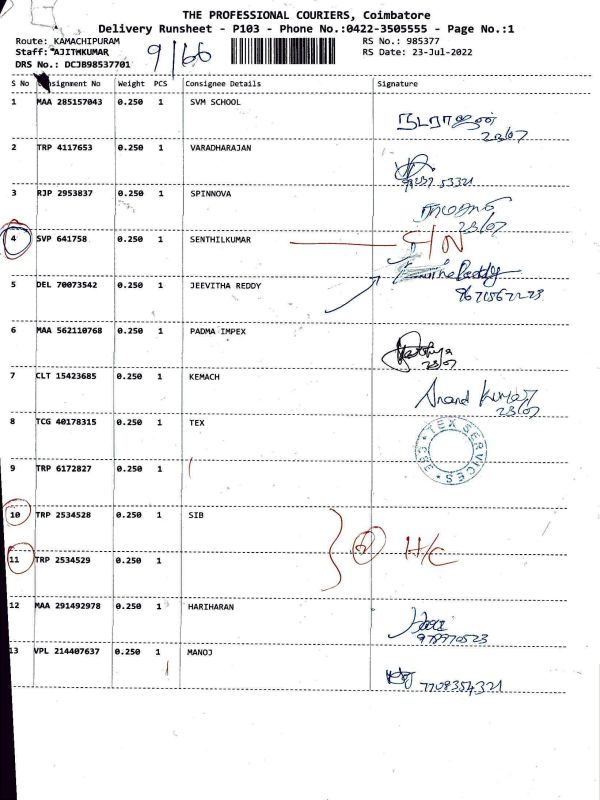 THE PROFESSIONAL COURIERS, Coimbatore
Delivery Runsheet - P103 - Phone No.:0422-3505555 - Page No.:1
Route: KAMACHIPURAM
RS No.: 985377
Staff: AJITHKUMAR
9/66
RS Date: 23-Jul-2022
DRS No.: DCJB98537701
S No Consignment No Weight PCS Consignee Details Signature
1 MAA 285157043 0.250 1 SVM SCHOOL
நடராஜன்
23/07
2 TRP 4117653 0.250 1 VARADHARAJAN
3 RJP 2953837 0.250 1 SPINNOVA
23/07
4 SVP 641758 0.250 1 SENTHILKUMAR
5 DEL 70073542 0.250 1 JEEVITHA REDDY
Reddy
6 MAA 562110768 0.250 1 PADMA IMPEX
23/07
7 CLT 15423685 0.250 1 KEMACH
Anand Kumar
23/07
8 TCG 40178315 0.250 1 TEX
TEX SERVICES
9 TRP 6172827 0.250 1
10 TRP 2534528 0.250 1 SIB
H/C
11 TRP 2534529 0.250 1
12 MAA 291492978 0.250 1 HARIHARAN
13 VPL 214407637 0.250 1 MANOJ
7708354321